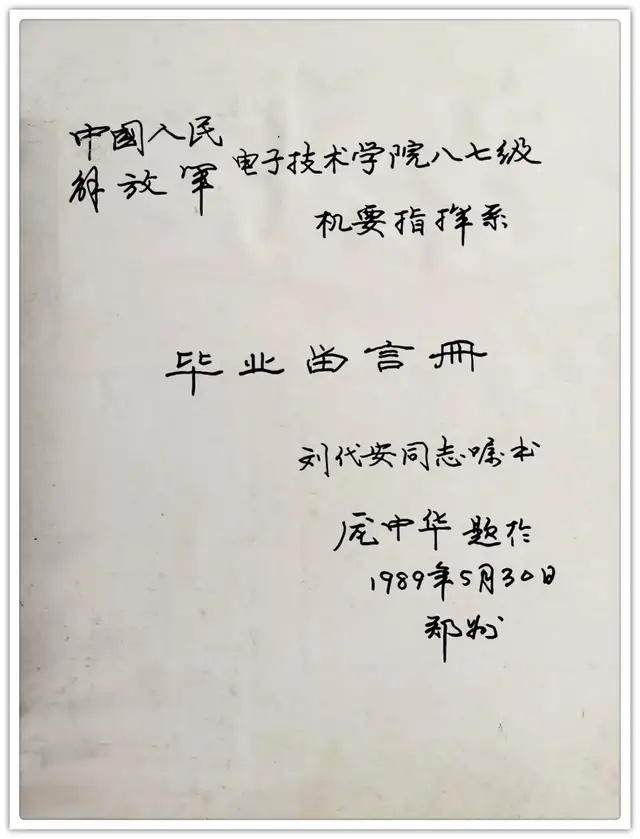 中國人民
解放軍
电子技术学院八七级
机要指挥系
毕业留言册
刘代安同志嘱书
庞中华题于
1989年5月30日
郑州